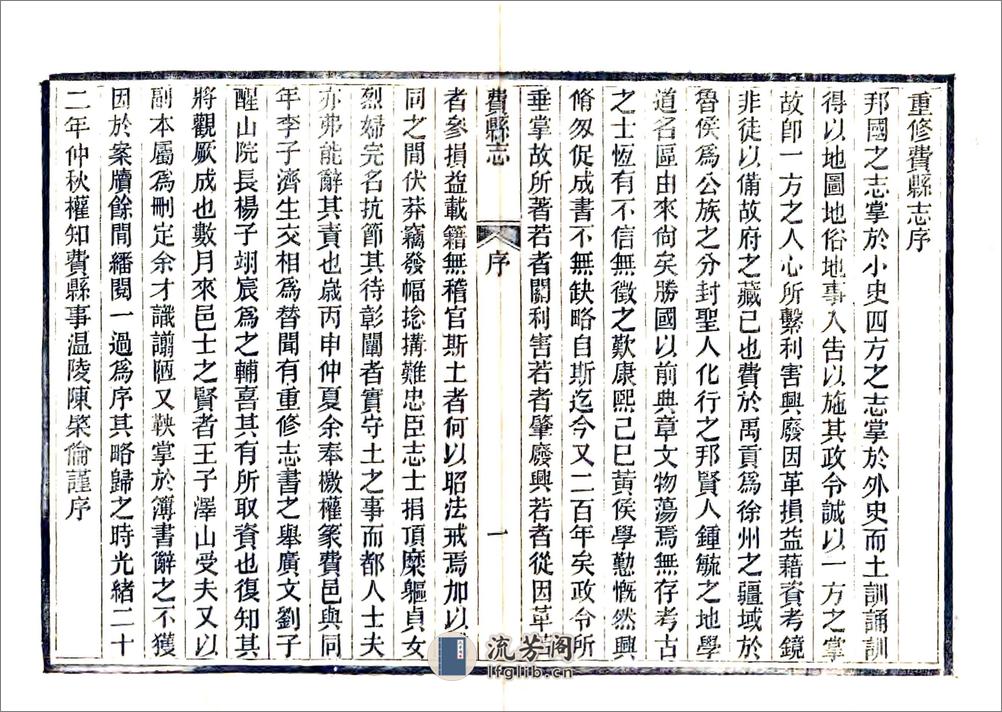 重修費縣志序
邦國之志掌於小史四方之志掌於外史而土訓誦訓
得以地圖地俗地事入告以施其政令誠以一方之掌
故卽一方之人心所繫利害興廢因革損益藉資考鏡
非徒以備故府之藏已也費於禹貢爲徐州之疆域於
魯侯爲公族之分封聖人化行之邦賢人鍾毓之地學
道名區由來尙矣勝國以前典章文物蕩焉無存考古
之士恆有不信無徵之歎康熙己巳黃侯學懃慨然興
脩匆促成書不無缺略自斯迄今又二百年矣政令所
垂掌故所著若者關利害若者肇廢興若者從因革
費縣志
序
一
者參損益載籍無稽官斯土者何以昭法戒焉加以
同之間伏莽竊發幅捻搆難忠臣志士捐頂糜軀貞女
烈婦完名抗節其待彰闡者實守土之事而都人士夫
亦弗能辭其責也歲丙申仲夏余奉檄權篆費邑與同
年李子濟生交相爲替聞有重修志書之舉廣文劉子
醒山院長楊子翊宸爲之輔喜其有所取資也復知其
將觀厥成也數月來邑士之賢者王子澤山受夫又以
副本屬爲刪定余才識謭陋又鞅掌於簿書辭之不獲
因於案牘餘閒繙閱一過爲序其略歸之時光緒二十
二年仲秋權知費縣事溫陵陳棨倫謹序
流芳阁
lfglib.cn